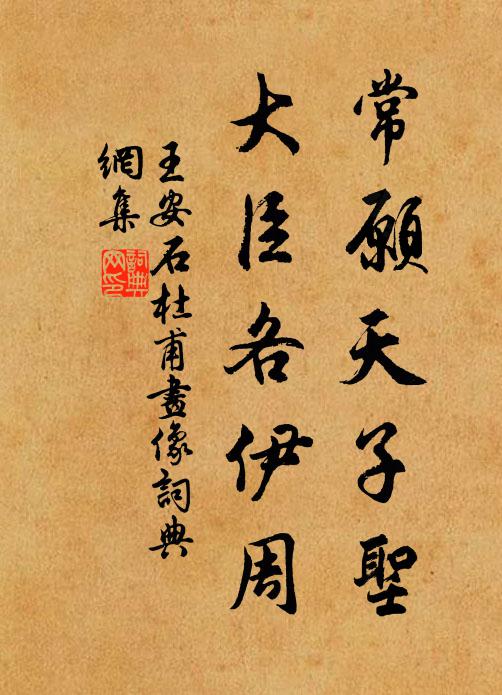 常願天子聖
大臣各伊周
王安石杜甫畫像詞典
網集
詞典
网印